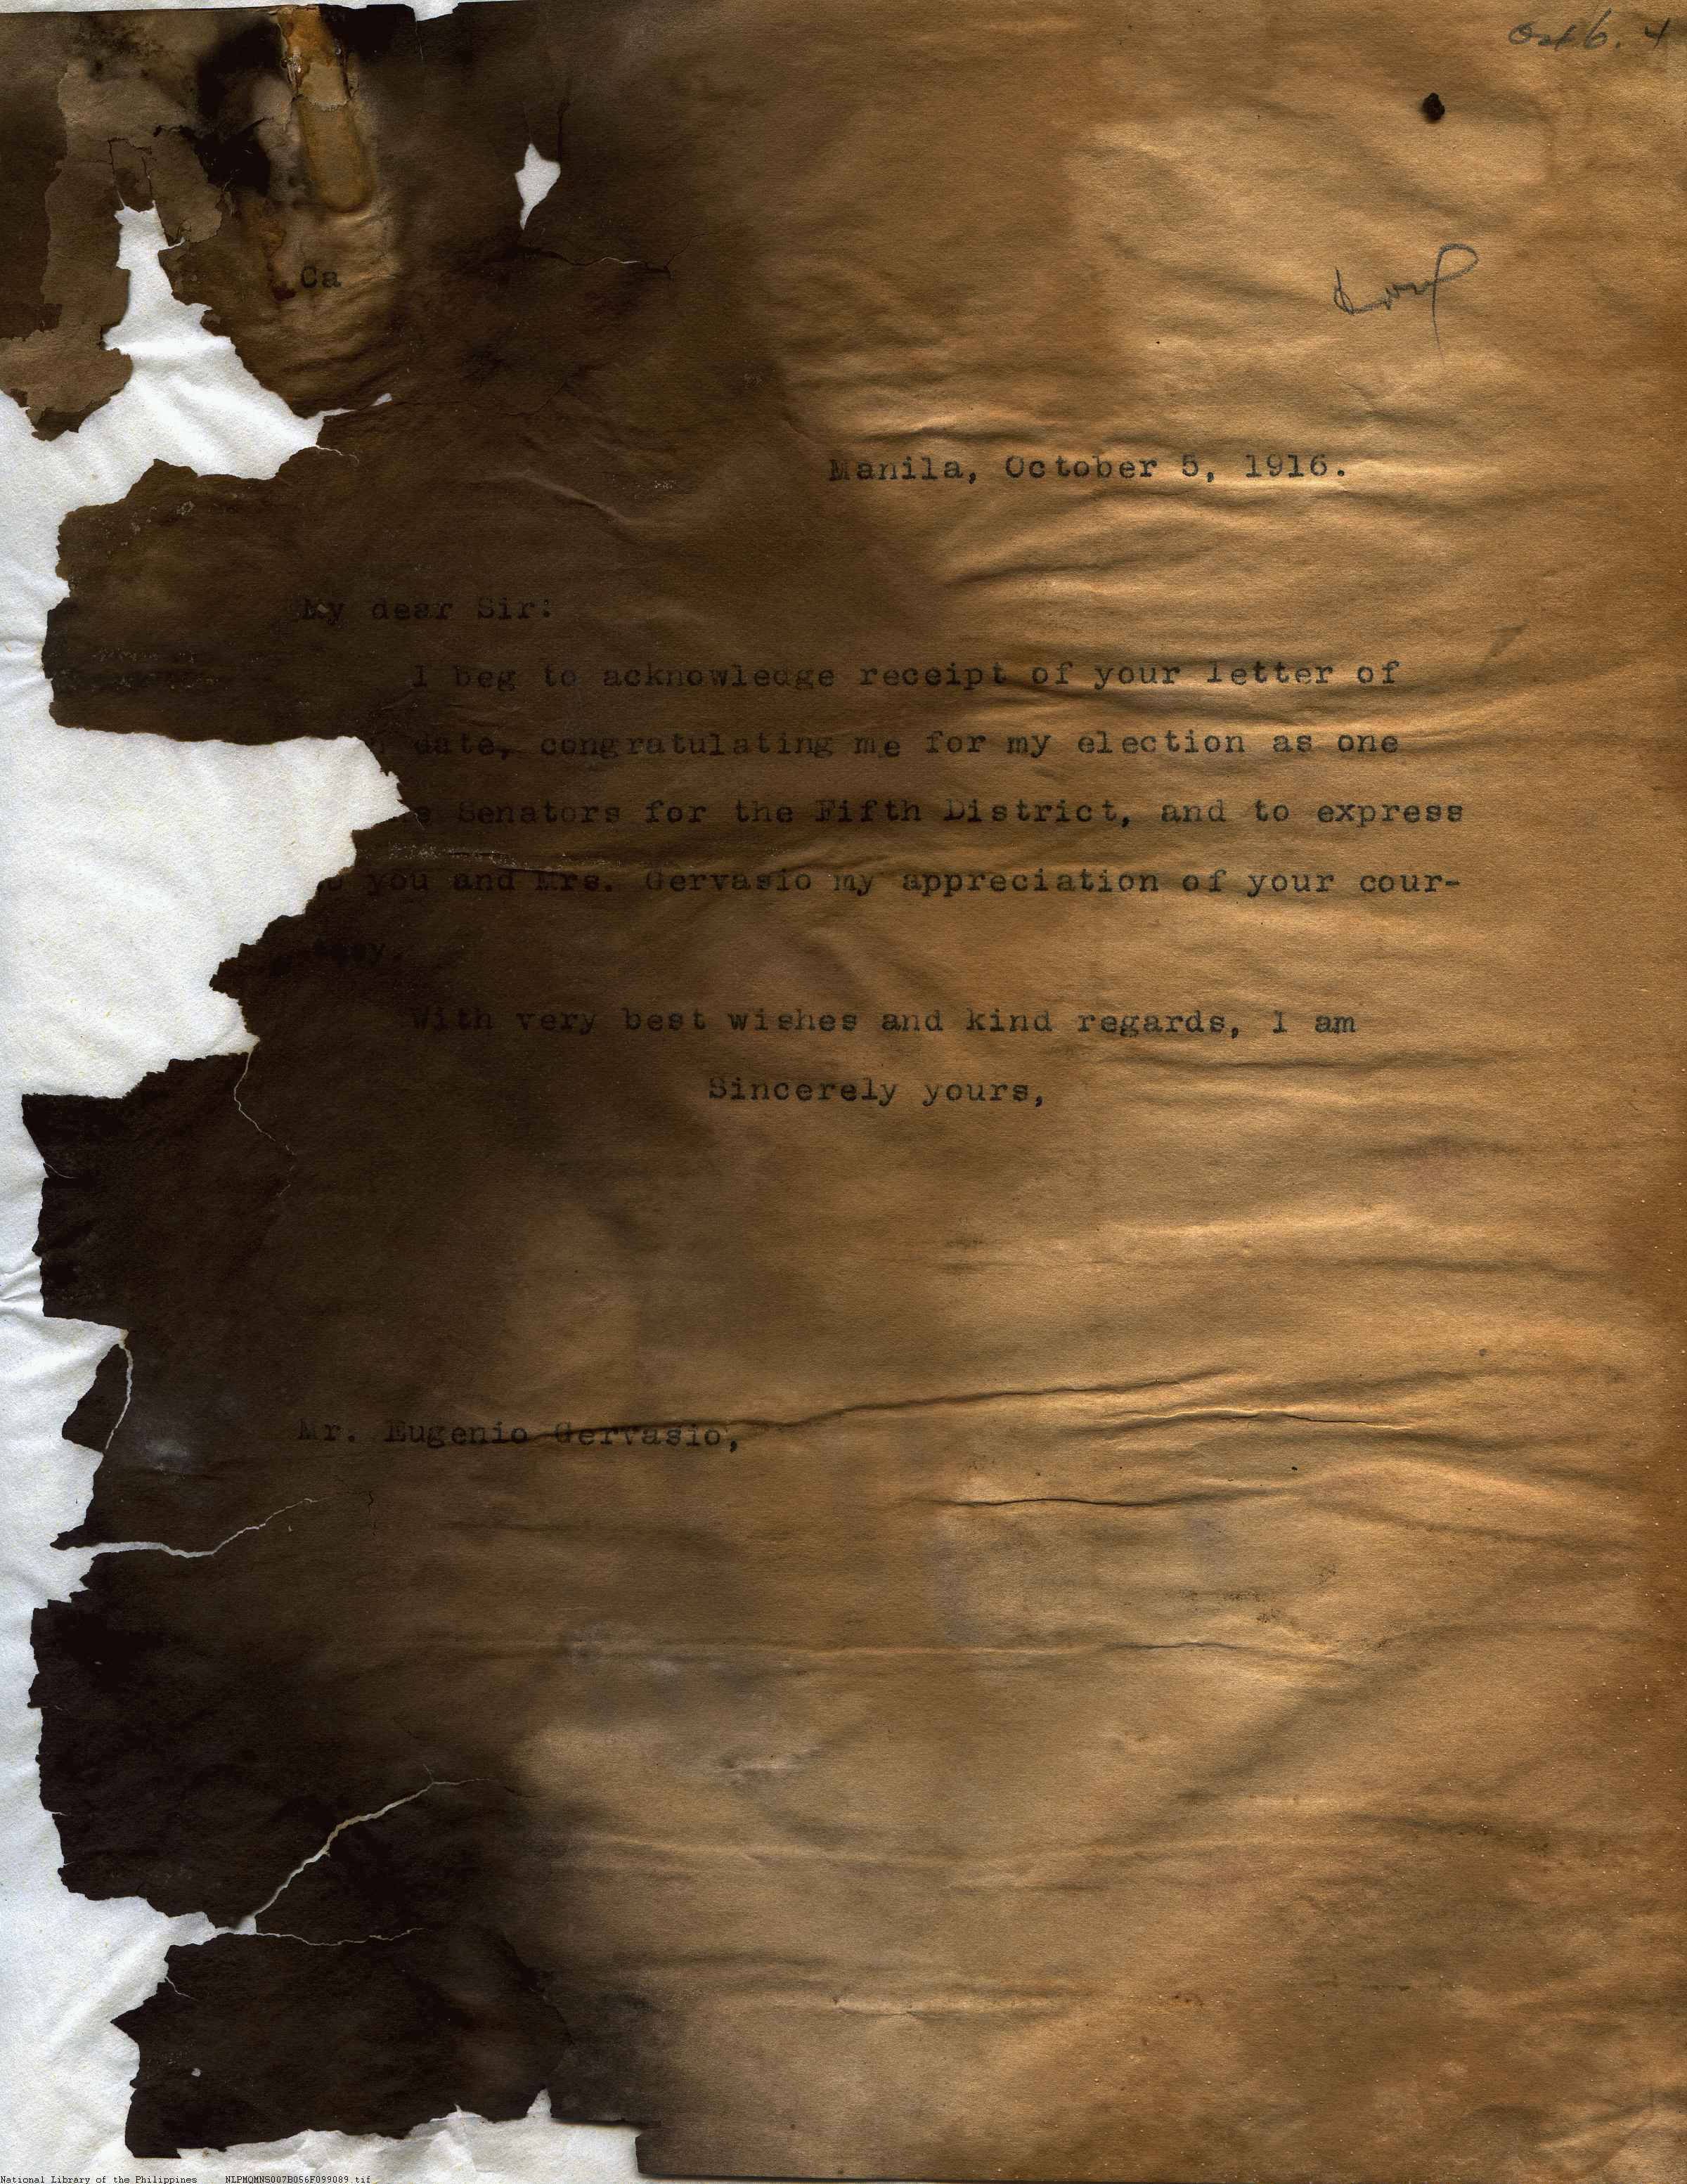 Oct 6. 4
Ca
Manila, October 5, 1916.
My dear Sir:
I beg to acknowledge receipt of your letter of
date, congratulating me for my election as one
Senators for the Fifth District, and to express
you and Mrs. Gervasio my appreciation of your cour-
With very best wishes and kind regards, I am
Sincerely yours,
Mr. Eugenio Gervasio,
National Library of the Philippines NLPMQMNS007B056F099089.tif